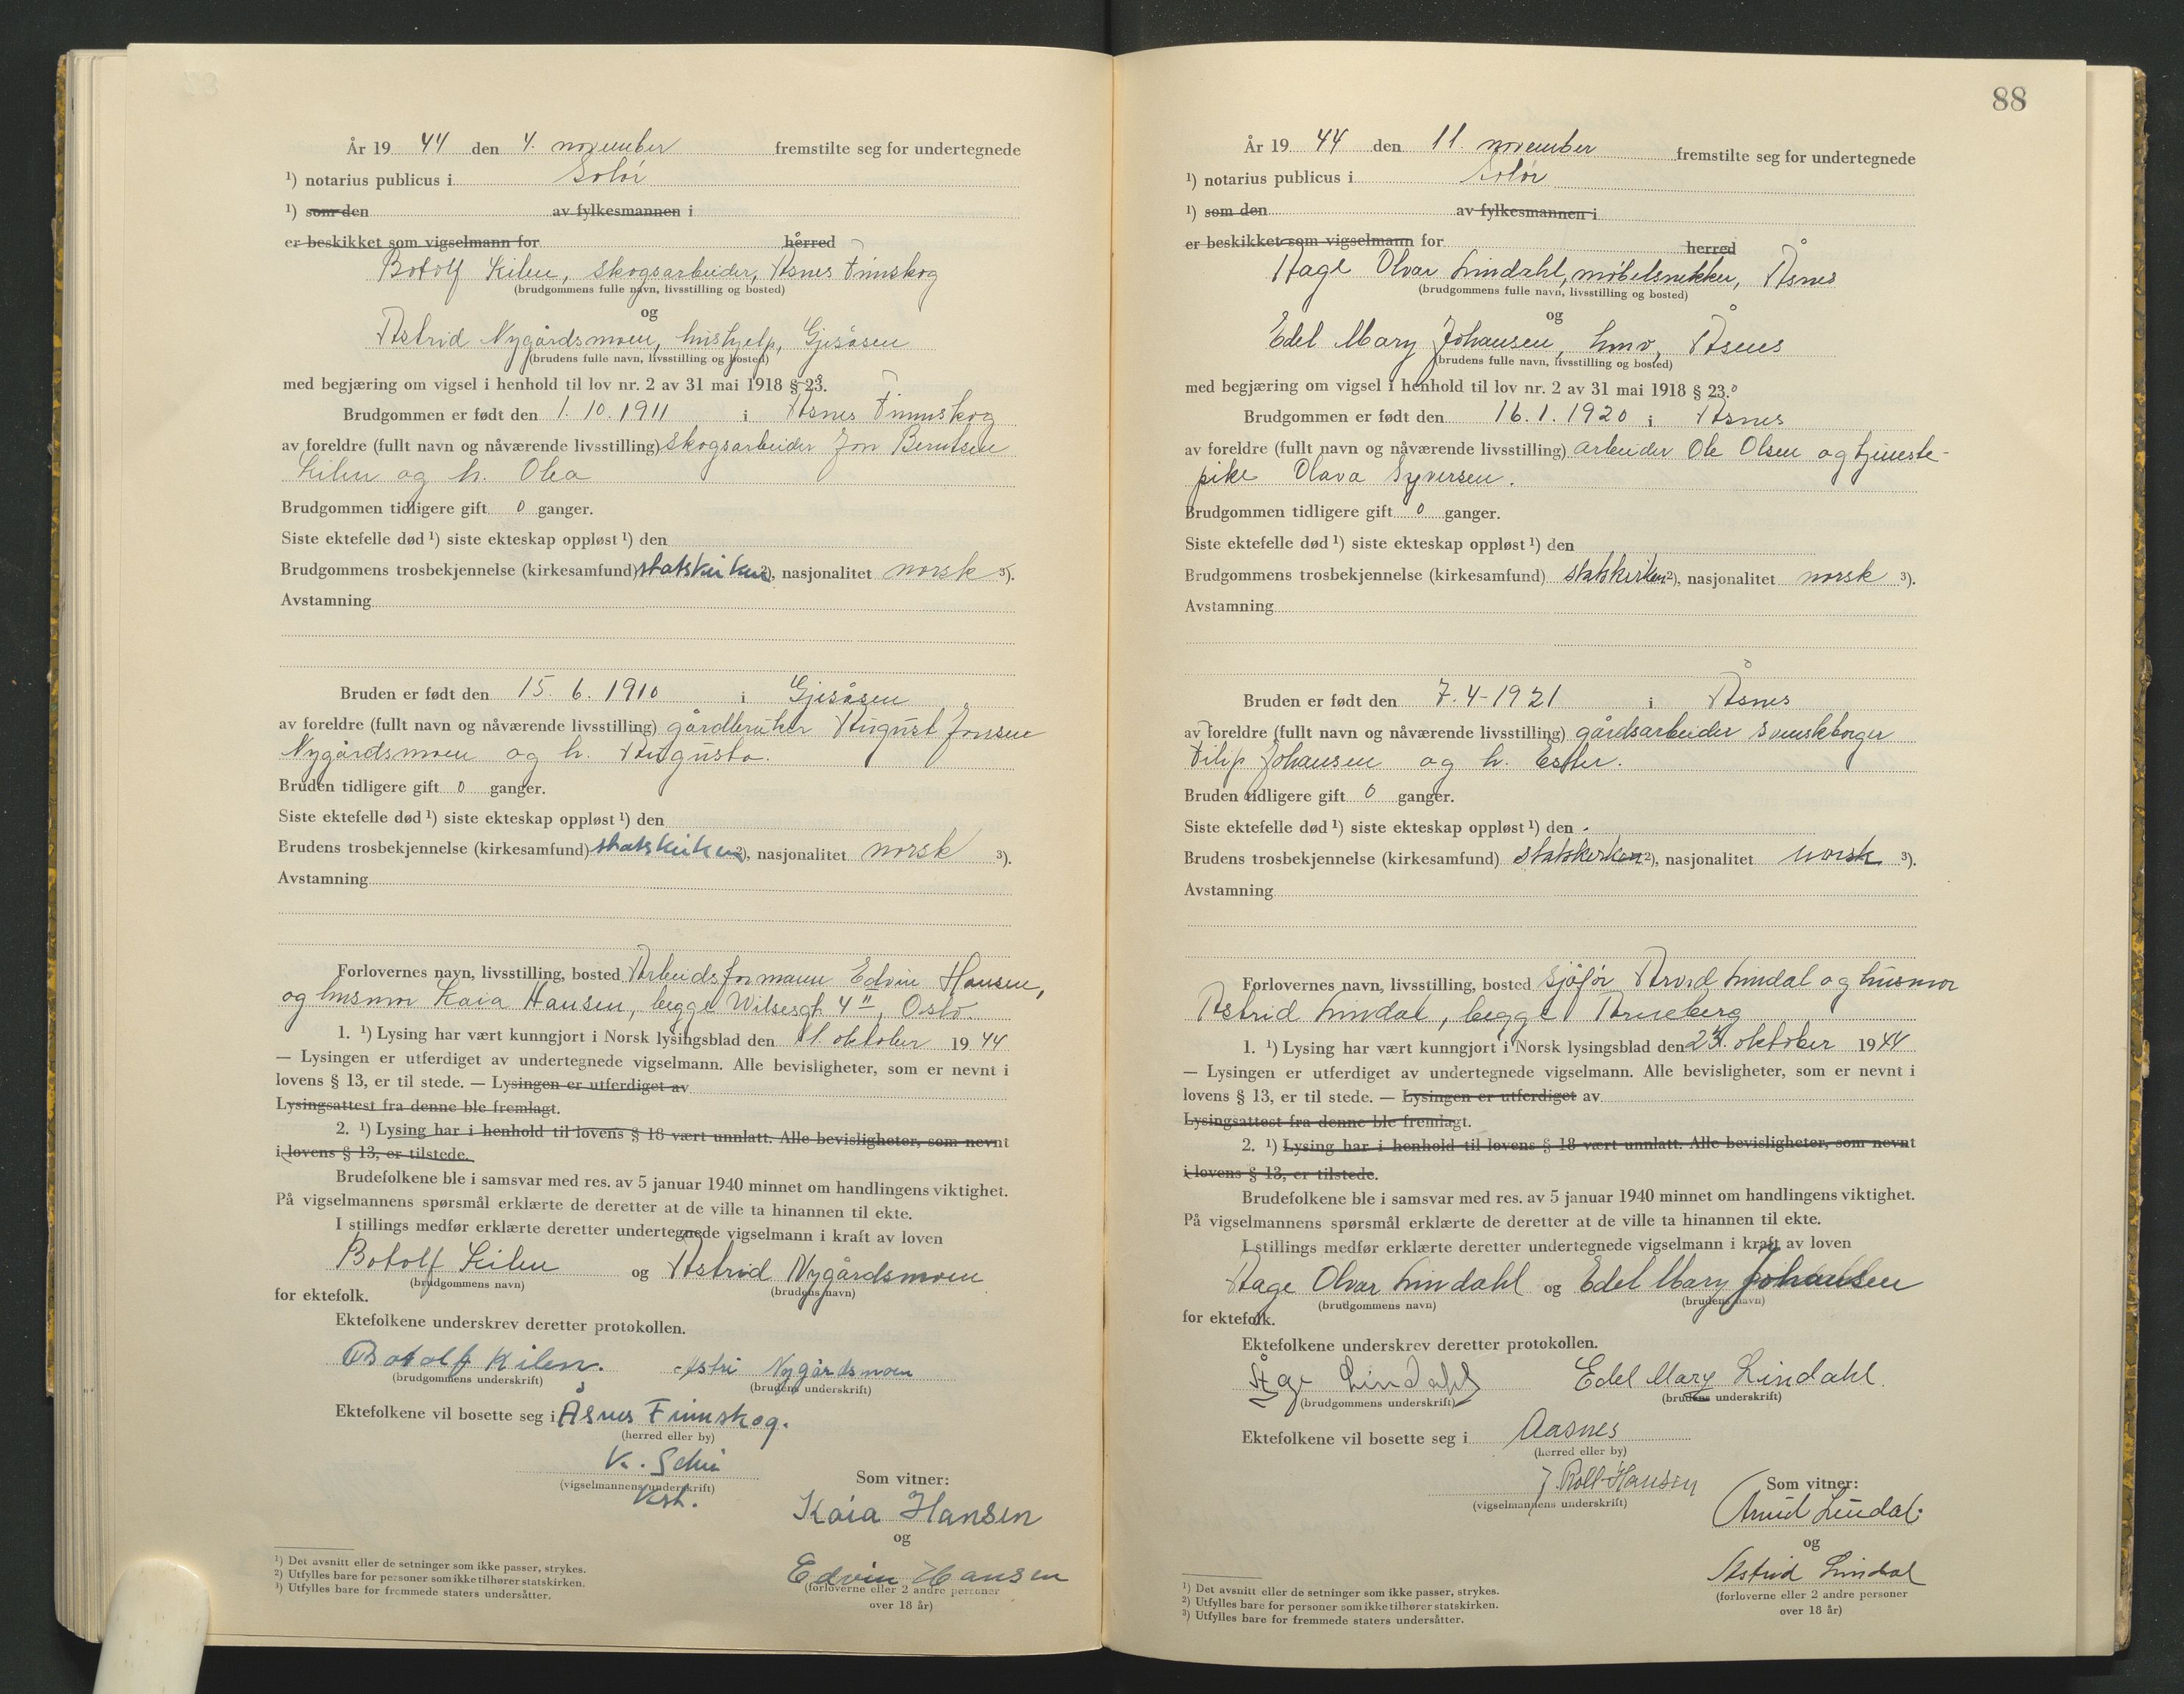 År 19 44 den 4. november fremstilte seg for undertegnede
¹) notarius publicus i Solør
¹) som den av fylkesmannen i
er beskikket som vigselmann for herred
Botolf Kilen, skogsarbeider, Åsnes Finnskog
(brudgommens fulle navn, livsstilling og bosted)
og
Astrid Nygårdsmoen, hushjelp, Gjesåsen
(brudens fulle navn, livsstilling og bosted)
med begjæring om vigsel i henhold til lov nr. 2 av 31 mai 1918 § 23.
Brudgommen er født den 1. 10. 1911 i Åsnes Finnskog
av foreldre (fullt navn og nåværende livsstilling) skogsarbeider Jon Berntsen
Kilen og h. Olea
Brudgommen tidligere gift 0 ganger.
Siste ektefelle død ¹) siste ekteskap oppløst ¹) den
Brudgommens trosbekjennelse (kirkesamfund) statskirken ²), nasjonalitet norsk ³).
Avstamning
Bruden er født den 15. 6. 1910 i Gjesåsen
av foreldre (fullt navn og nåværende livsstilling) gårdbruker August Jonsen
Nygårdsmoen og h. Augusta.
Bruden tidligere gift 0 ganger.
Siste ektefelle død ¹) siste ekteskap oppløst ¹) den
Brudens trosbekjennelse (kirkesamfund) statskirken ²), nasjonalitet norsk ³).
Avstamning
Forlovernes navn, livsstilling, bosted Arbeidsformann Edvin Hansen,
og husmor Kaia Hansen, begge Wilsesgt. 4 ", Oslo.
1. ¹) Lysing har vært kunngjort i Norsk lysingsblad den 11. oktober 19 44
— Lysingen er utferdiget av undertegnede vigselmann. Alle bevisligheter, som er nevnt i
lovens § 13, er til stede. — Lysingen er utferdiget av
Lysingsattest fra denne ble fremlagt.
2. ¹) Lysing har i henhold til lovens § 18 vært unnlatt. Alle bevisligheter, som nevnt
i lovens § 13, er tilstede.
Brudefolkene ble i samsvar med res. av 5 januar 1940 minnet om handlingens viktighet.
På vigselmannens spørsmål erklærte de deretter at de ville ta hinannen til ekte.
I stillings medfør erklærte deretter undertegnede vigselmann i kraft av loven
Botolf Kilen og Astrid Nygårdsmoen
(brudgommens navn) (brudens navn)
for ektefolk.
Ektefolkene underskrev deretter protokollen.
Botolf Kilen. Astri Nygårdsmoen
(brudgommens underskrift) (brudens underskrift)
Ektefolkene vil bosette seg i Åsnes Finnskog.
(herred eller by)
K. Schie
(vigselmannens underskrift)
kst.
Som vitner:
Kaia Hansen
og
Edvin Hansen
(forloverne eller 2 andre personer
over 18 år)
¹) Det avsnitt eller de setninger som ikke passer, strykes.
²) Utfylles bare for personer som ikke tilhører statskirken.
³) Utfylles bare for fremmede staters undersåtter.
88
År 19 44 den 11. november fremstilte seg for undertegnede
¹) notarius publicus i Solør
¹) som den av fylkesmannen i
er beskikket som vigselmann for herred
Aage Olvar Lindahl, møbelsnekker, Åsnes
(brudgommens fulle navn, livsstilling og bosted)
og
Edel Mary Johansen, hmv, Åsnes
(brudens fulle navn, livsstilling og bosted)
med begjæring om vigsel i henhold til lov nr. 2 av 31 mai 1918 § 23.
Brudgommen er født den 16. 1. 1920 i Åsnes
av foreldre (fullt navn og nåværende livsstilling) arbeider Ole Olsen og tjeneste-
pike Olava Syversen.
Brudgommen tidligere gift 0 ganger.
Siste ektefelle død ¹) siste ekteskap oppløst ¹) den
Brudgommens trosbekjennelse (kirkesamfund) statskirken ²), nasjonalitet norsk ³).
Avstamning
Bruden er født den 7. 4 - 1921 i Åsnes
av foreldre (fullt navn og nåværende livsstilling) gårdsarbeider svenskborger
Filip Johansen og h. Ester.
Bruden tidligere gift 0 ganger.
Siste ektefelle død ¹) siste ekteskap oppløst ¹) den
Brudens trosbekjennelse (kirkesamfund) statskirken ²), nasjonalitet norsk ³).
Avstamning
Forlovernes navn, livsstilling, bosted sjåfør Arvid Lindal og husmor
Astrid Lindal, begge Arneberg
1. ¹) Lysing har vært kunngjort i Norsk lysingsblad den oktober 19 44
— Lysingen er utferdiget av undertegnede vigselmann. Alle bevisligheter, som er nevnt i
lovens § 13, er til stede. — Lysingen er utferdiget av
Lysingsattest fra denne ble fremlagt.
2. ¹) Lysing har i henhold til lovens § 18 vært unnlatt. Alle bevisligheter, som nevnt
i lovens § 13, er tilstede.
Brudefolkene ble i samsvar med res. av 5 januar 1940 minnet om handlingens viktighet.
På vigselmannens spørsmål erklærte de deretter at de ville ta hinannen til ekte.
I stillings medfør erklærte deretter undertegnede vigselmann i kraft av loven
Aage Olvar Lindahl og Edel Mary Johansen
(brudgommens navn) (brudens navn)
for ektefolk.
Ektefolkene underskrev deretter protokollen.
Åge Lindahl Edel Mary Lindahl.
(brudgommens underskrift) (brudens underskrift)
Ektefolkene vil bosette seg i Aasnes
(herred eller by)
J. Roll-Hansen
(vigselmannens underskrift)
Som vitner:
Arvid Lindal
og
Astrid Lindal
(forloverne eller 2 andre personer
over 18 år)
¹) Det avsnitt eller de setninger som ikke passer, strykes.
²) Utfylles bare for personer som ikke tilhører statskirken.
³) Utfylles bare for fremmede staters undersåtter.